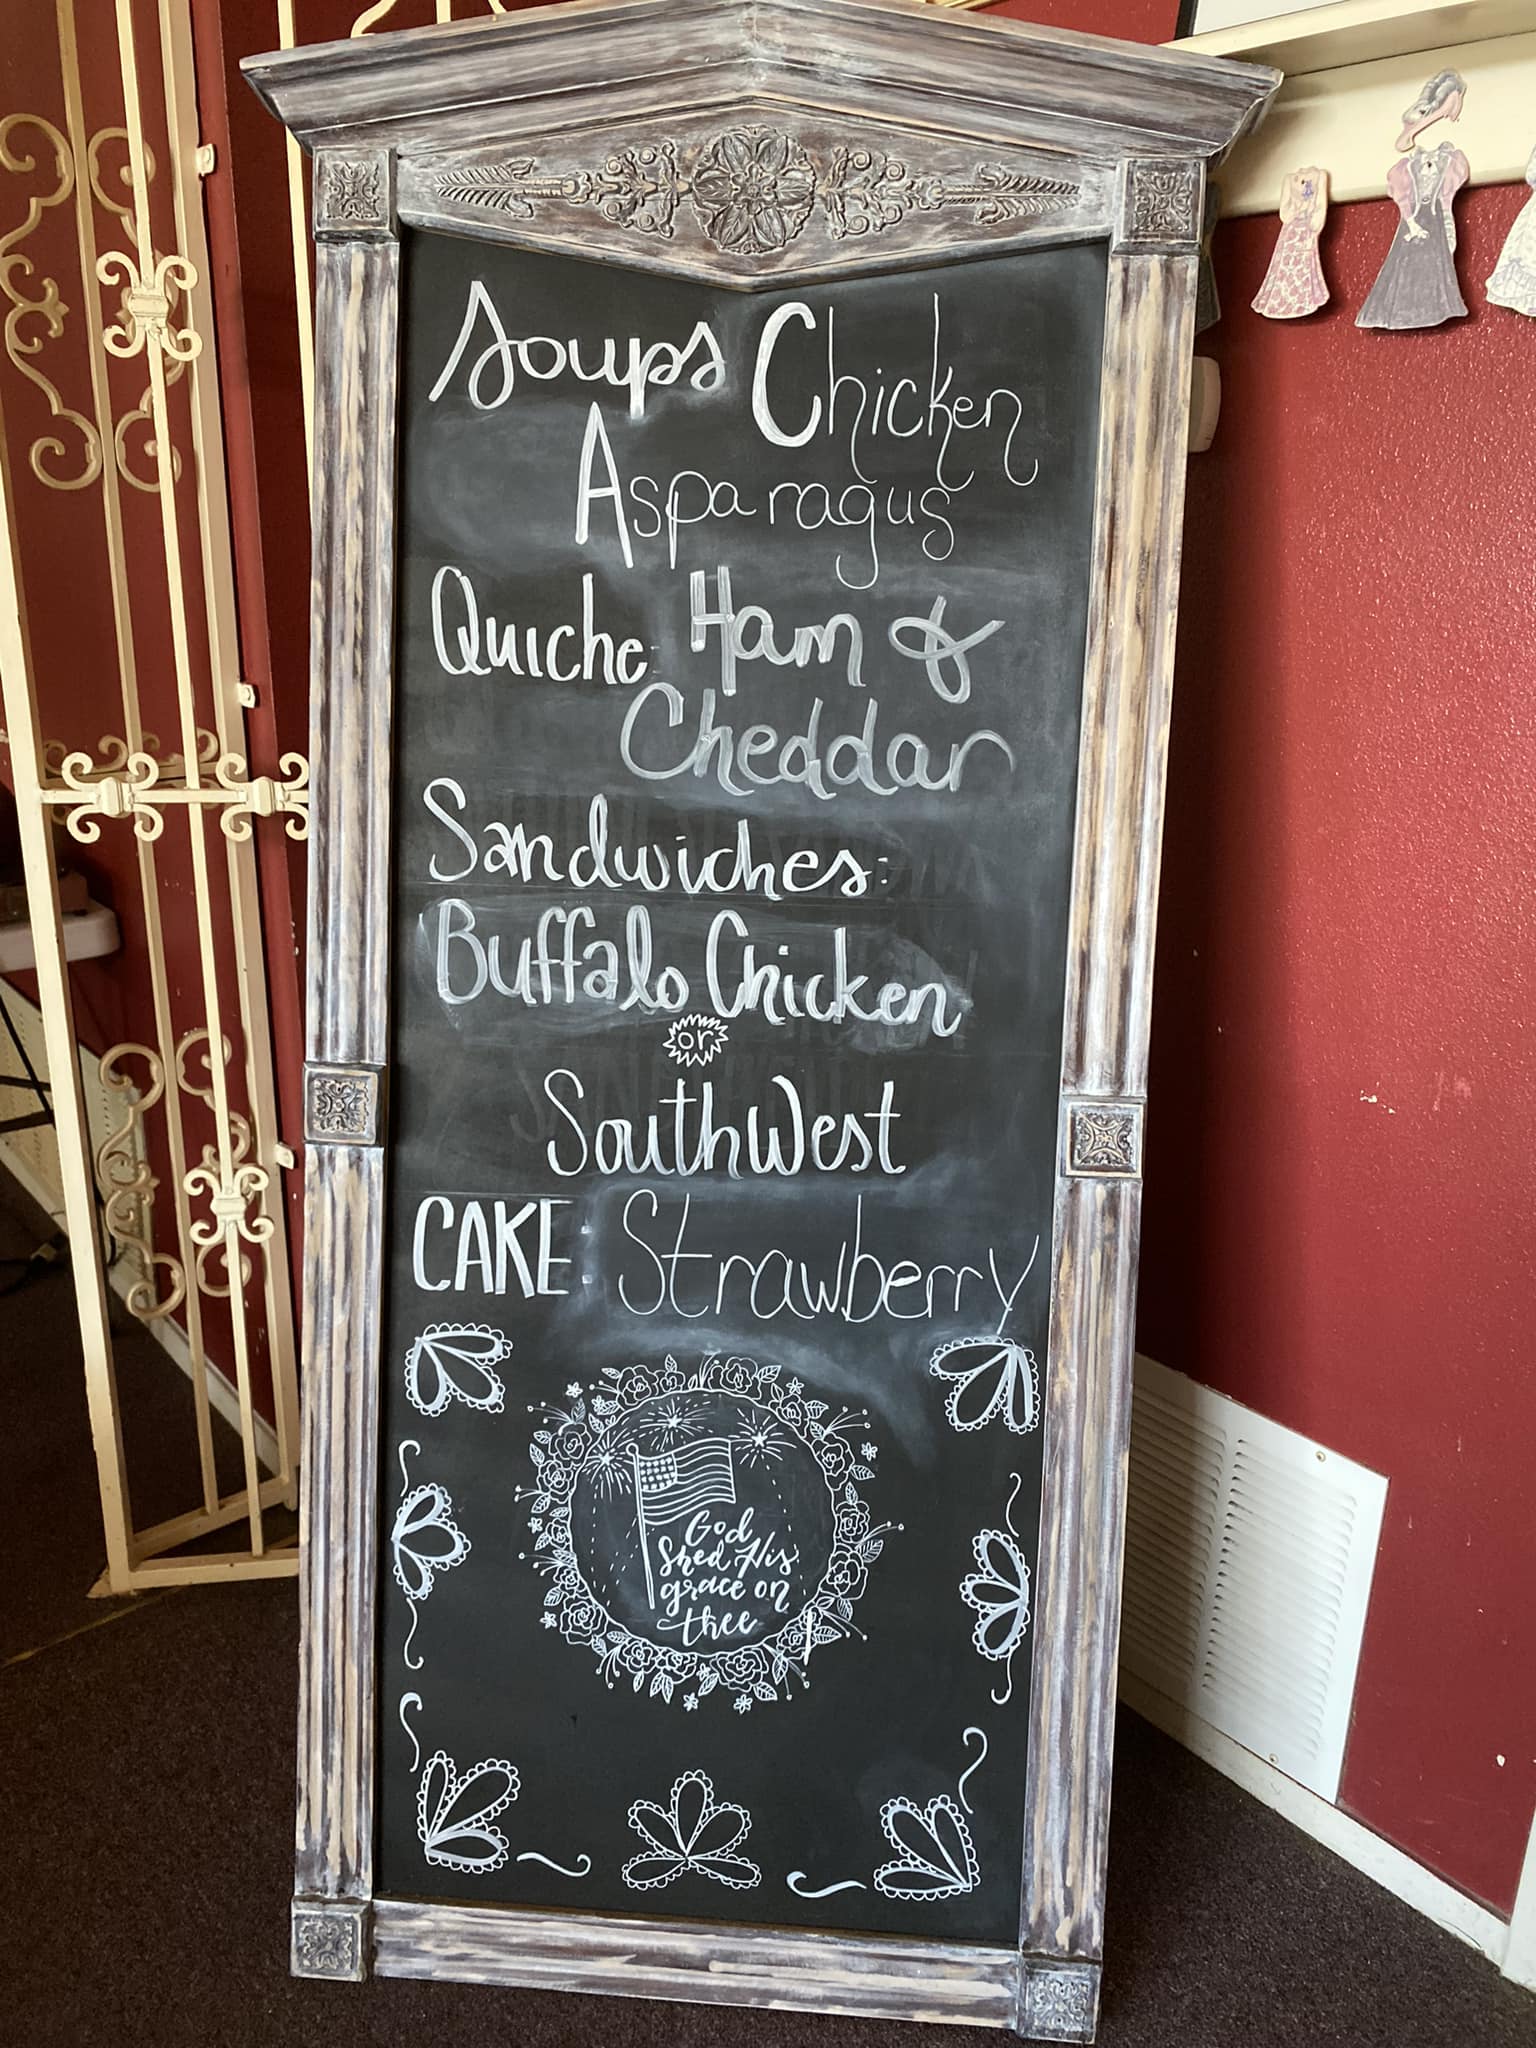 Soups Chicken
Asparagus
Quiche: Ham &
Cheddar
Sandwiches:
Buffalo Chicken
or
SouthWest
CAKE: Strawberry
God
Shed His
grace on
thee